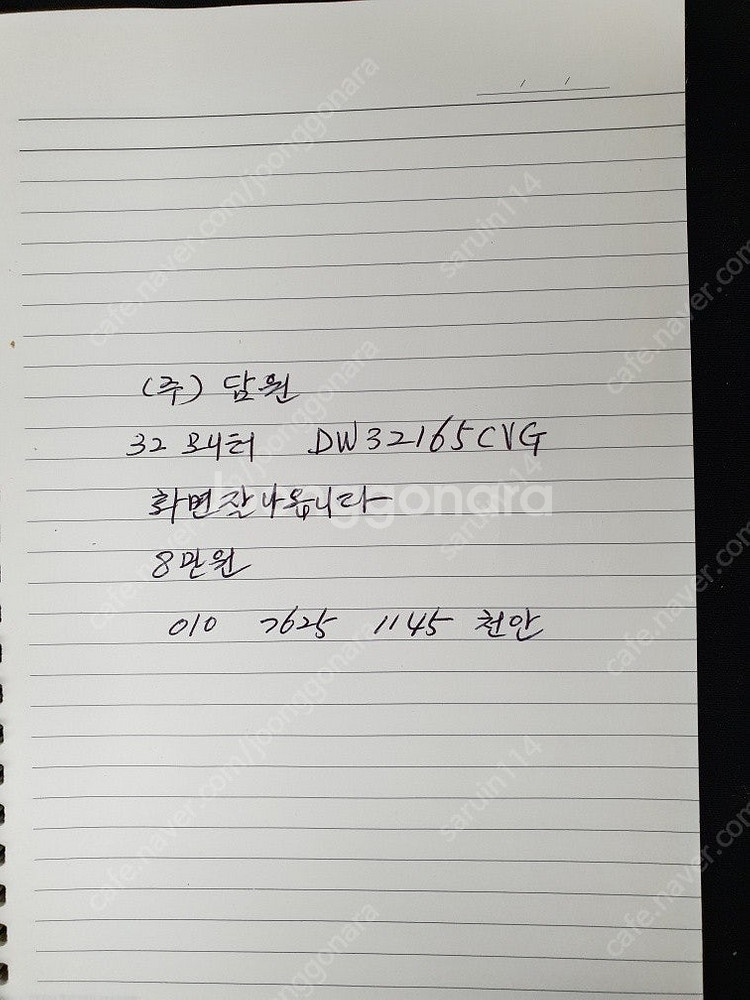 (주) 담원
32 모니터 DW32165CVG
화면잘나옵니다
8만원
010 7625 1145 천안
joonggonara
cafe.naver.com/joonggonara
saruin114
cafe.naver.com